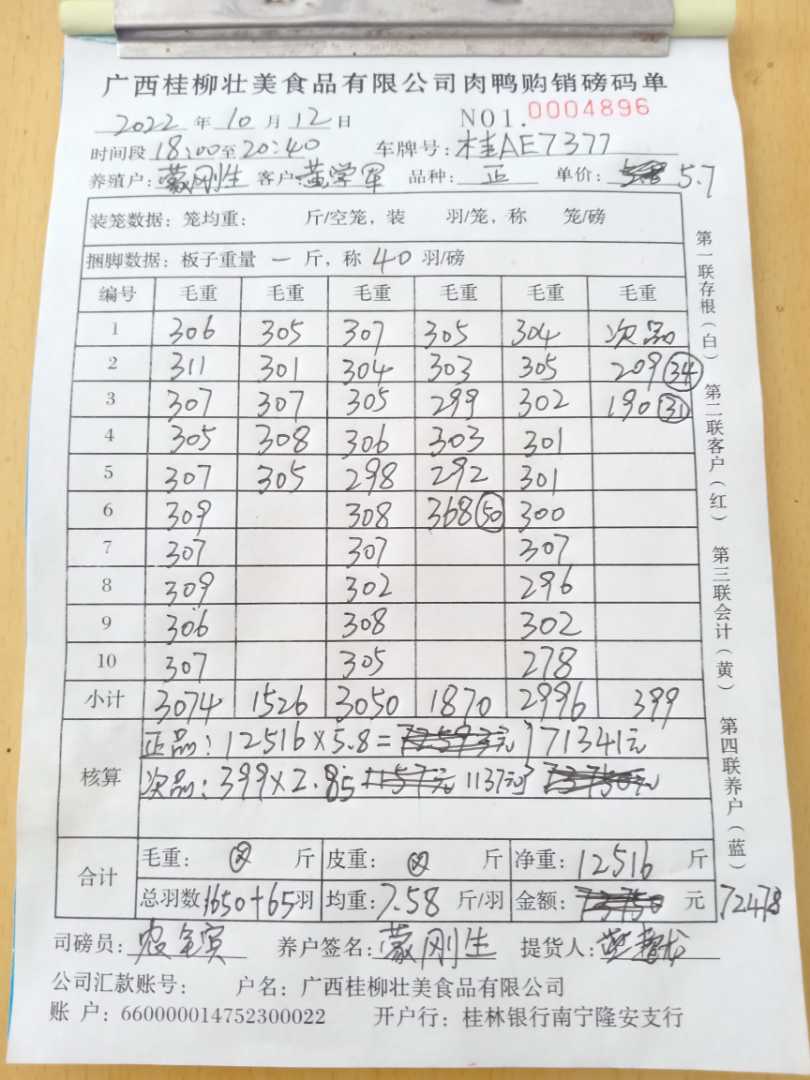 广西桂柳壮美食品有限公司肉鸭购销磅码单
2022 年 10 月 12 日 NO1. 0004896
时间段 18:00至20:40 车牌号: 桂AE7377
养殖户: 蒙刚生 客户: 黄学军 品种: 正 单价: 5.7
装笼数据: 笼均重: 斤/空笼, 装 羽/笼, 称 笼/磅
捆脚数据: 板子重量 一 斤, 称 40 羽/磅
编号 毛重 毛重 毛重 毛重 毛重 毛重
1 306 305 307 305 304 次品
2 311 301 304 303 305 209 (34)
3 307 307 305 299 302 190 (31)
4 305 308 306 303 301
5 307 305 298 292 301
6 309 308 368 (50) 300
7 307 307 307
8 309 302 296
9 306 308 302
10 307 305 278
小计 3074 1526 3050 1870 2996 399
核算
正品: 12516×5.8= 71341元
次品: 399×2.85 1137元
合计
毛重: 斤 皮重: 斤 净重: 12516 斤
总羽数: 1650+65羽 均重: 7.58 斤/羽 金额: 元 72478
司磅员: 养户签名: 蒙刚生 提货人:
公司汇款账号: 户名: 广西桂柳壮美食品有限公司
账 户: 660000014752300022 开户行: 桂林银行南宁隆安支行
第一联存根(白)
第二联客户(红)
第三联会计(黄)
第四联养户(蓝)